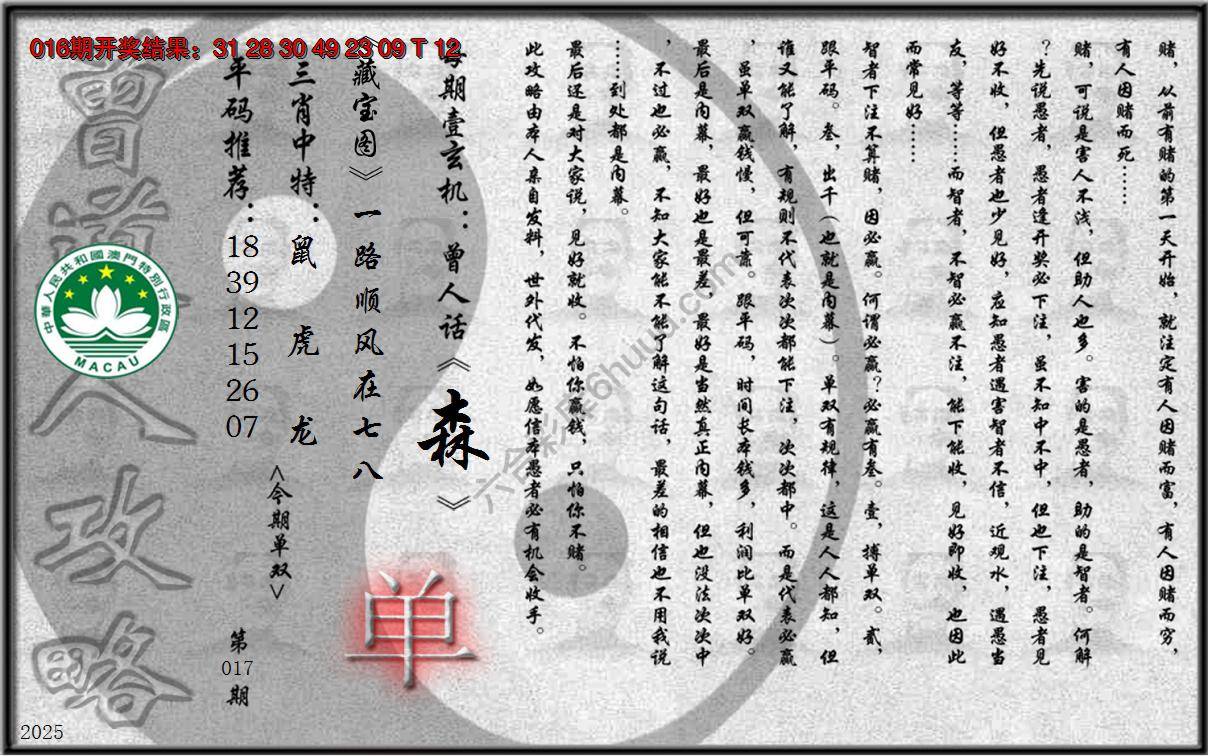 016期开奖结果：31 28 30 49 23 09 T 12
赌，从前有赌的第一天开始，就注定有人因赌而富，有人因赌而穷，
有人因赌而死……
赌，可说是害人不浅，但助人也多。害的是愚者，助的是智者。何解
？先说愚者，愚者逢开奖必下注，虽不知中不中，但也下注，愚者见
好不收，但愚者也少见好，应知愚者遇害智者不信，近观水，遇愚当
友，等等……而智者，不智必赢不注，能下能收，见好即收，也因此
而常见好……
智者下注不算赌，因必赢。何谓必赢？必赢有叁。壹，搏单双。贰，
跟平码。叁，出千（也就是内幕）。单双有规律，这是人人都知，但
谁又能了解，有规则不代表次次都能下注，次次都中。而是代表必赢
，虽单双赢钱慢，但可靠。跟平码，时间长本钱多，利润比单双好。
最后是内幕，最好也是最差，最好是当然真正内幕，但也没法次次中
，不过也必赢，不知大家能不能了解这句话，最差的相信也不用我说
……到处都是内幕。
最后还是对大家说，见好就收。不怕你赢钱，只怕你不赌。
此攻略由本人亲自发料，世外代发，如愿信本愚者必有机会收手。
每期壹玄机：曾人话《森》
《藏宝图》一路顺风在七八
单
三肖中特：鼠 虎 龙
<今期单双>
平码推荐：18 39 12 15 26 07
第017期
曾道人攻略
中華人民共和國澳門特別行政區
MACAU
2025